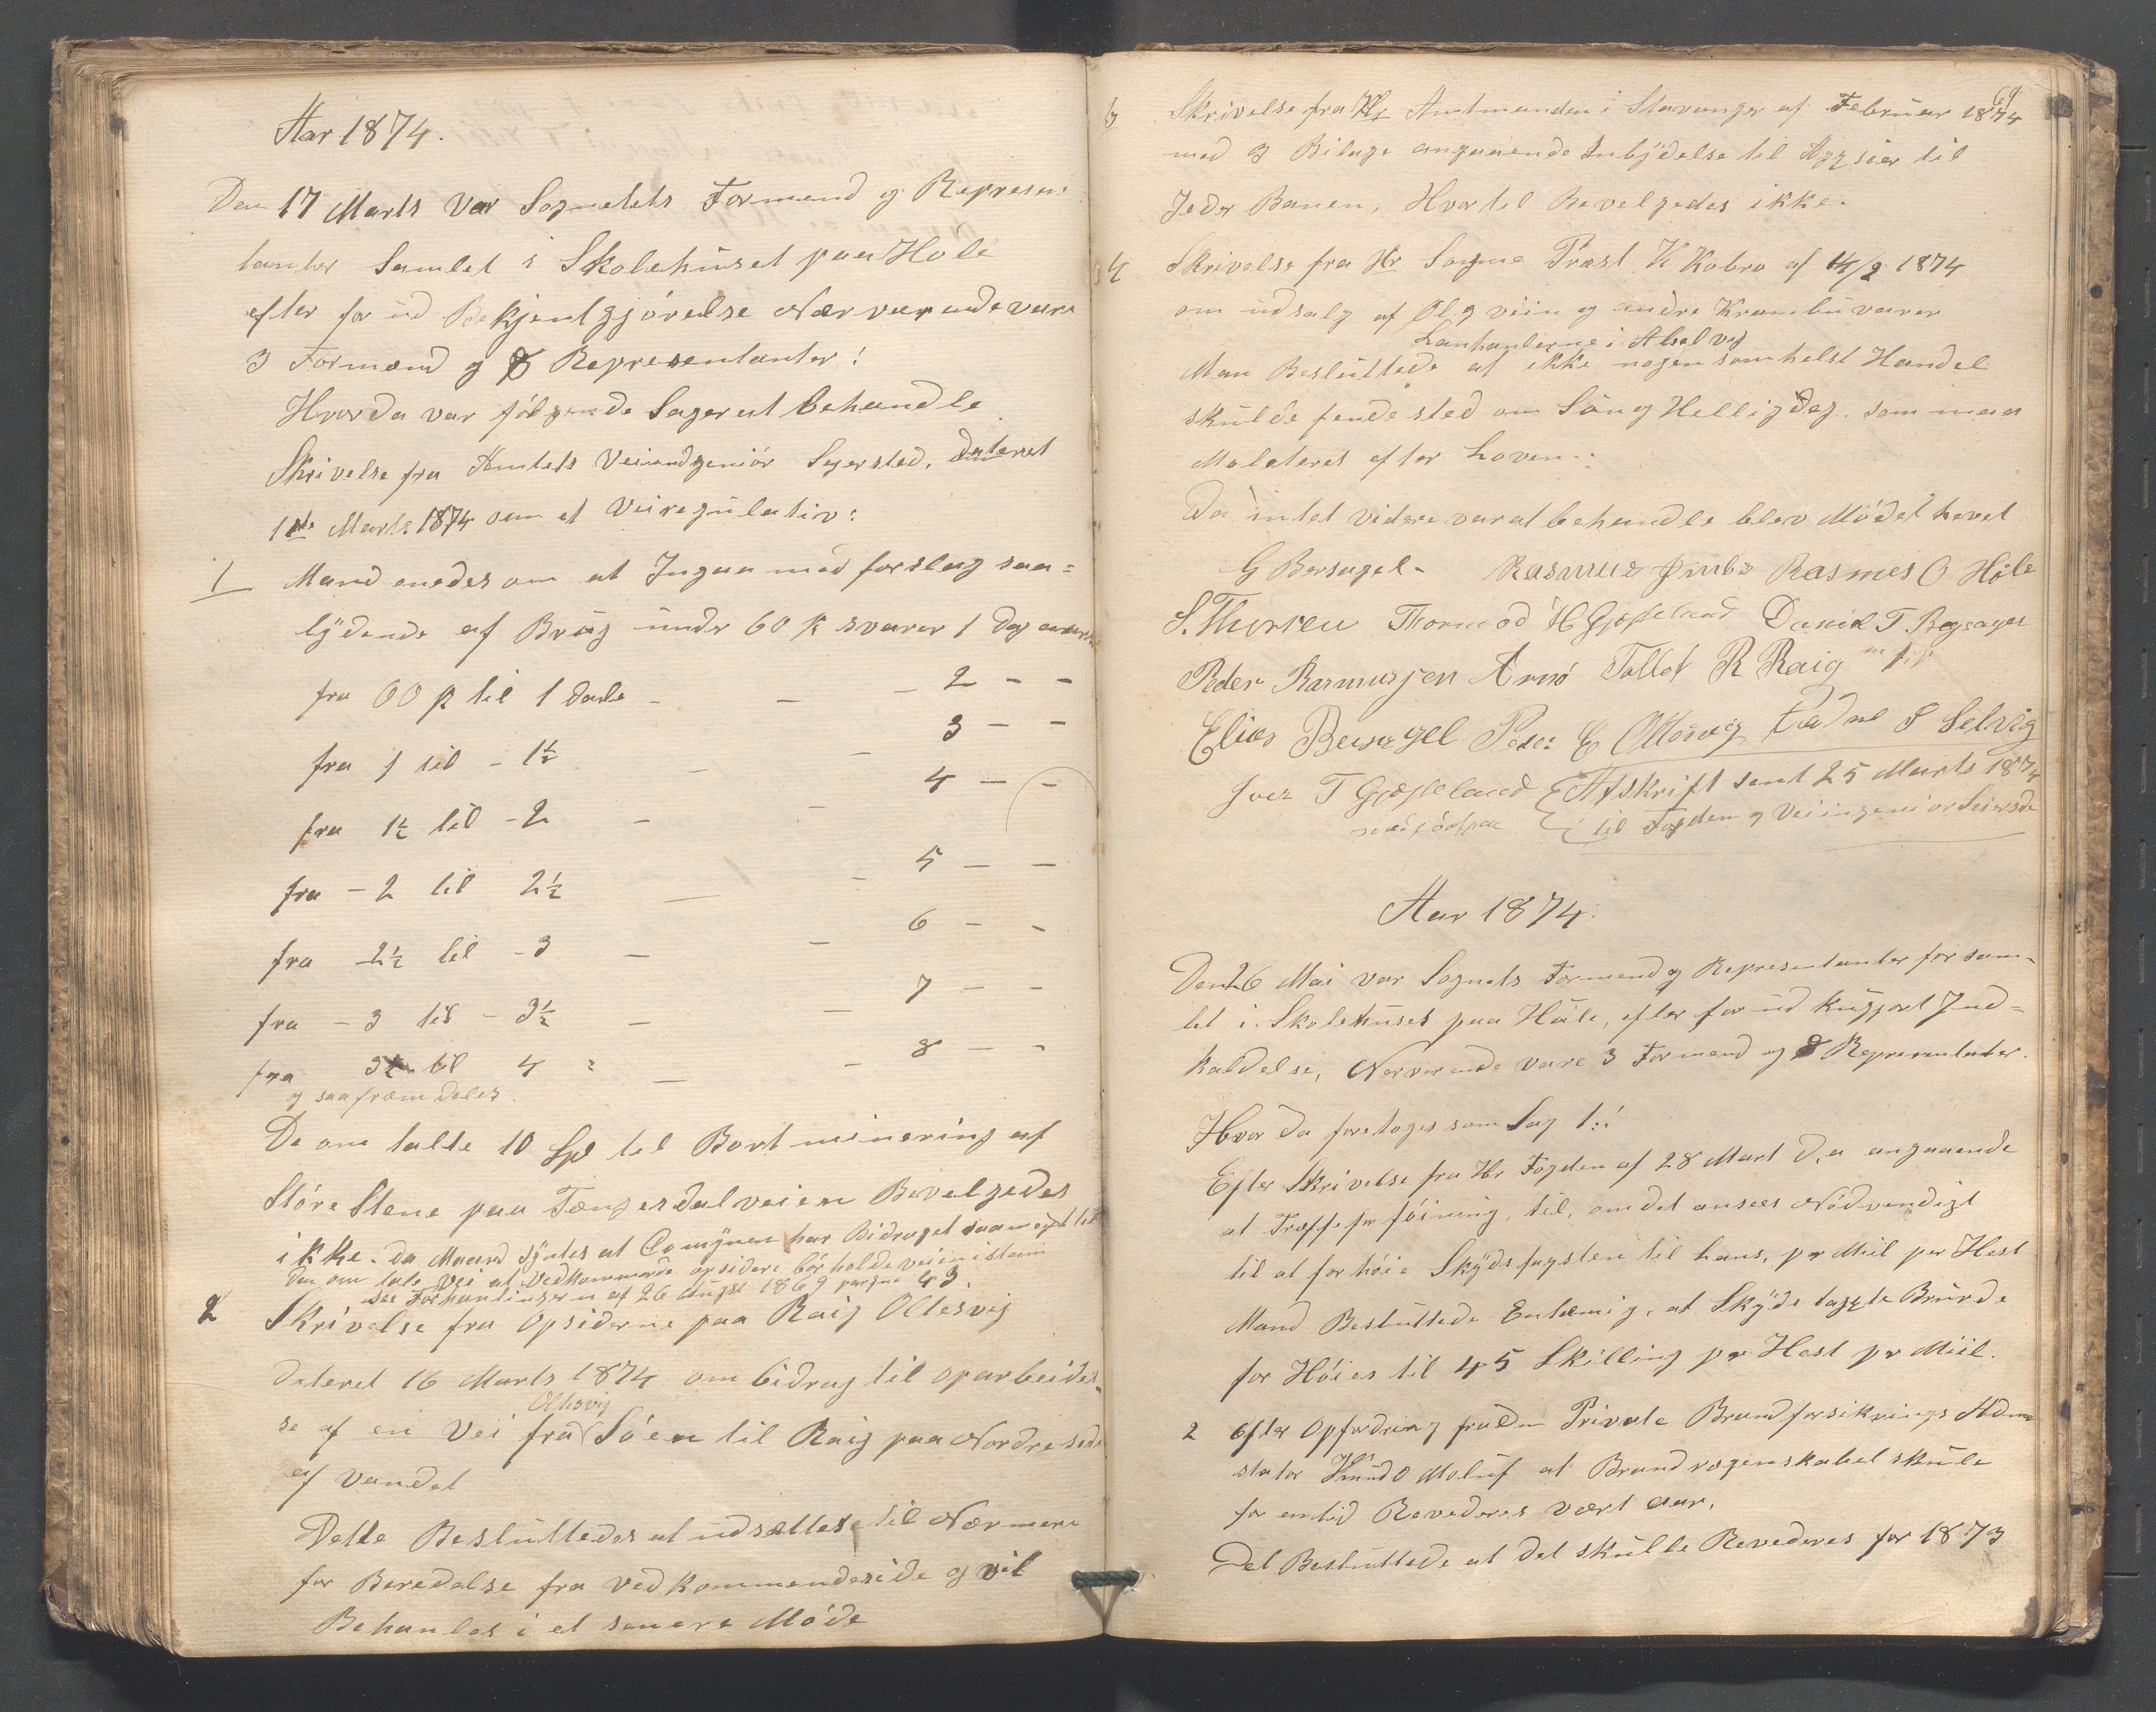 Aar 1874.
Den 17 Marts var Sognetets Formend og Represen
tanter Samlet i Skolehuset paa Hole
efter for ud Bekjentgjörelse Nærværende vare
3 Formænd og 8 Representanter!
Hvorda var fölgende Sager at behandle
Skrivelse fra Amtets Veiendgeniör Sejersted, dateret
1ste Marts 1874 om et Veiregulativ:
1 Mand enedes om at Ingaa med forslag saa=
lydende af Brug under 60 ß svarer 1 Dag
fra 60 ß til 1 Dale - - - 2 - -
fra 1 til - 1½ - 3 - -
fra 1½ til - 2 - - - 4 - -
fra - 2 til 2½ - - 5 - -
fra - 2½ til - 3 - - 6 - -
fra - 3 til - 3½ - - 7 - -
fra 3½ til 4 - - 8 - -
og saafræmdeles
De om talte 10 Spd til Bortminering af
Störe Stene paa Tængesdalveien Bevelgedes
ikke. da Maand syntes at Comynen har Bidraget saameget til
den om tale Vei at Vedkommende opsidere bör holde veien istann
see Forhanlingern af 26 Augst 1869 pagina 43.
2 Skrivelse fra Opsiderne paa Raig Oltesvig
dateret 16 Marts 1874 om bidrag til oparbeidel-
Oltesvig
se af en Vei fra Söen til Raig paa Nordre side
af Vandet
Dette Besluttedes at udsættes til Nærmere
for Beredelse fra Vedkommendeside og vil
Behanles i et senere Möde
69
3 Skrivelse fra Hr Amtmanden i Stavanger af Februar 1874
med 3 Bilage angaaende Inbydelse til Agzier til
Jeder Banen, Hvortil Bevelgedes ikke.
4 Skrivelse fra Hr Sogne Præst K Kobro af 14/2 1874
om udsalg af Öl og viin og andre Krambuvarer
Lanhanlerne i Alsalvig
Man Besluttede at ikke nogen somhelst Handel
skulde finde sted om Sön og Helligdag. som maa
Molkteres efter Loven.
Da intet videre var at behandle blev Mödet hevet
G Bersagel. Rasmus Rasmes O Hole
S. Thorsen Tormod H Gjöseland Daniel T. Bergsagel
Peder Rasmussen Arnö Tollef R Raig m p.p.
Elias Bersagel Peder E Oltesvig S Selvig
Iver T Gjöseland Afskrift sent 25 Marts 1874
til Fogden og Veiingeniör
Aar 1874.
Den 26 Mai var Sognets Formend og Representanter for sam-
let i Skolehuset paa Hole, efter for ud kugjort Ind=
kaldelse, Nerverende vare 3 Formend og 8 Representater.
Hvor da foretoges som Sag 1:!
Efter Skrivelse fra Hr Fogden af 28 Mart D,a angaaende
at Træffe for föining, til, om det ansees Nödvendigt
til at forhöie Skydsfagsten til hans, pr Miil per Hest
Mand Besluttede Enstæmig, at Skyds taxte Burde
for Höies til 45 Skilling pr Hest pr Miil.
2 Efter Opfordring fra den Private Brandforsikrings Admi
stator Knud O Moluf at Brandregenskabet skule
for emtid Revederes vært aar.
Det Besluttede at det skulle Revederes for 1873